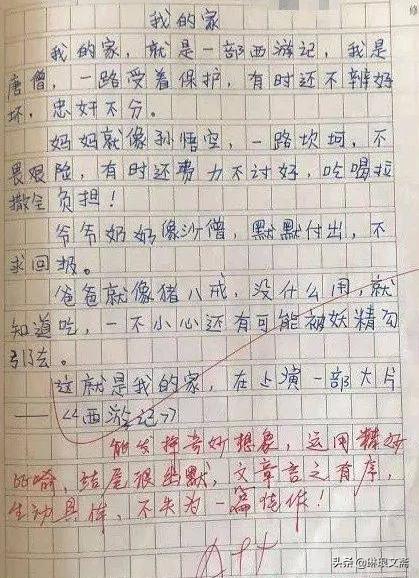 我的家
我的家，就是一部西游记，我是
唐僧，一路受着保护，有时还不辨好
坏，忠奸不分。
妈妈就像孙悟空，一路坎坷，不
畏艰险，有时还费力不讨好，吃喝拉
撒全负担！
爷爷奶奶像沙僧，默默付出，不
求回报。
爸爸就像猪八戒，没什么用，就
知道吃，一不小心还有可能被妖精勾
引去。
这就是我的家，在上演一部大片
——《西游记》
能发挥奇妙想象，运用精妙
比喻，结尾很幽默，文章言之有序，
生动具体，不失为一篇佳作！
A++
头条@琳琅文斋